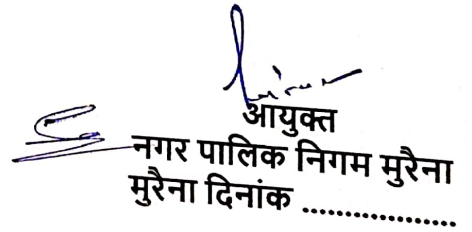 आयुक्त
नगर पालिक निगम मुरैना
मुरैना दिनांक ..................